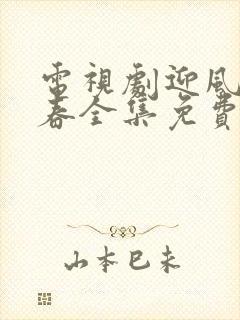 電視劇迎風
春全集免費
山本巳未